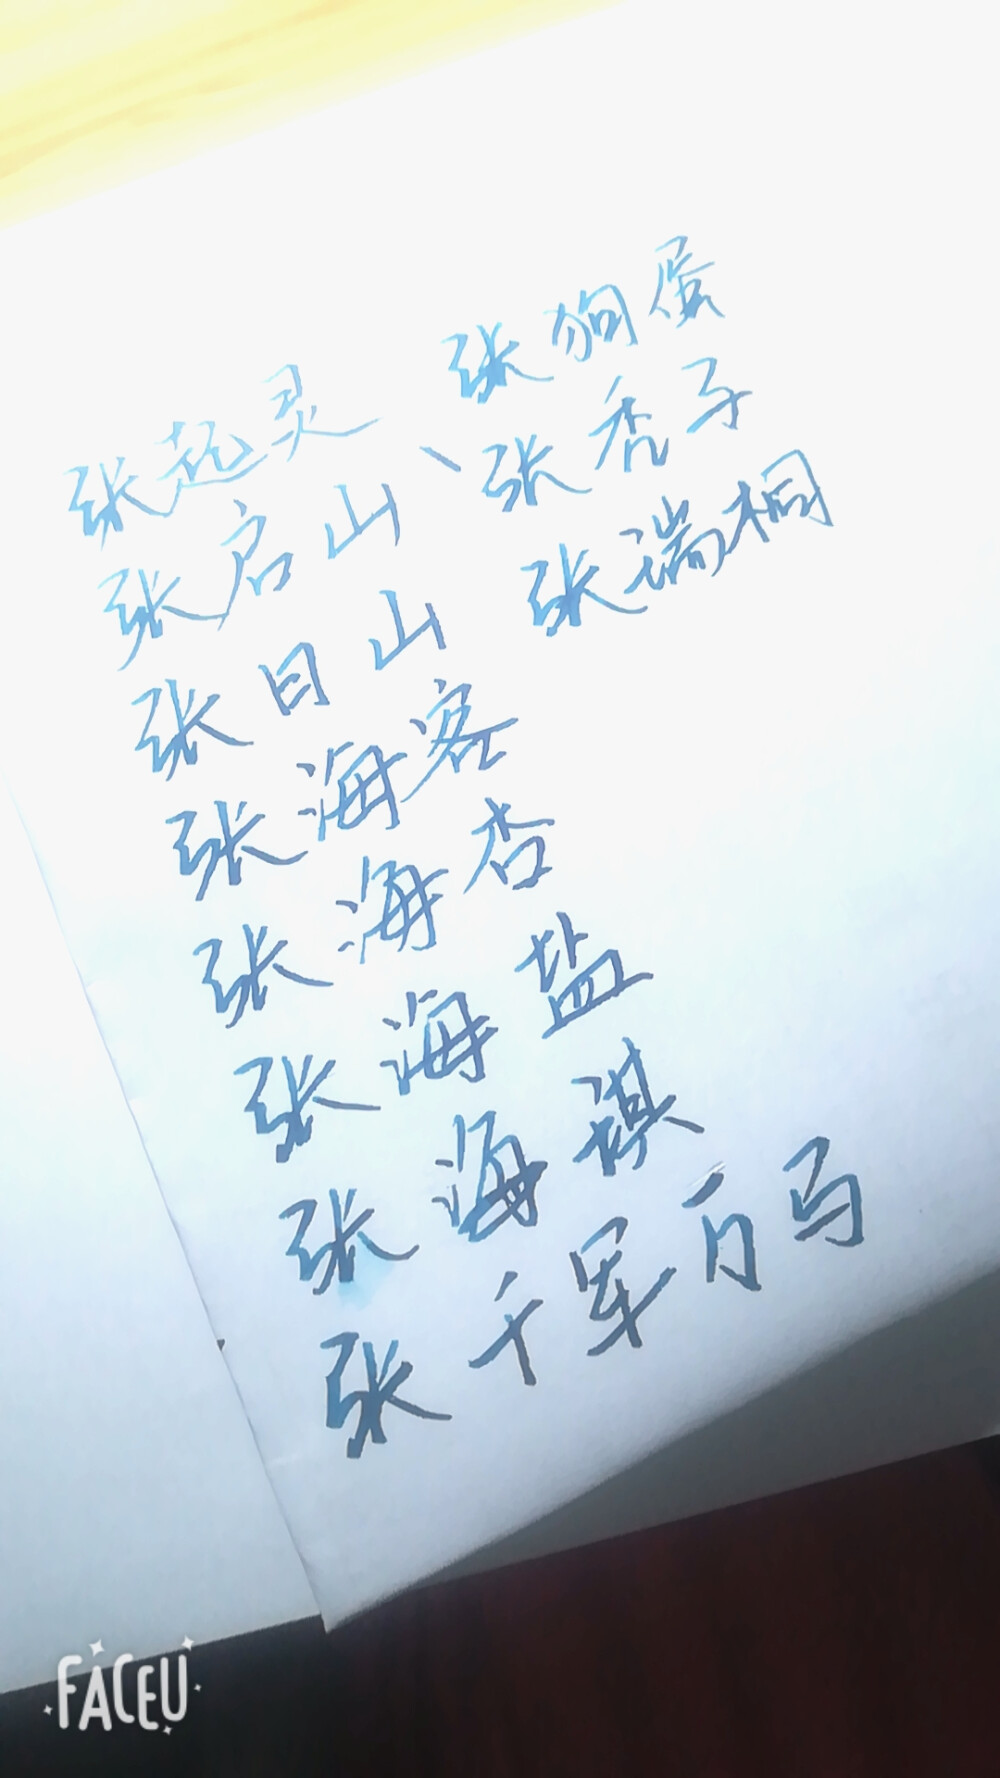 张起灵 张狗蛋
张启山、张秃子
张日山 张瑞桐
张海客
张海杏
张海盐
张海琪
张千军万马
FACEU